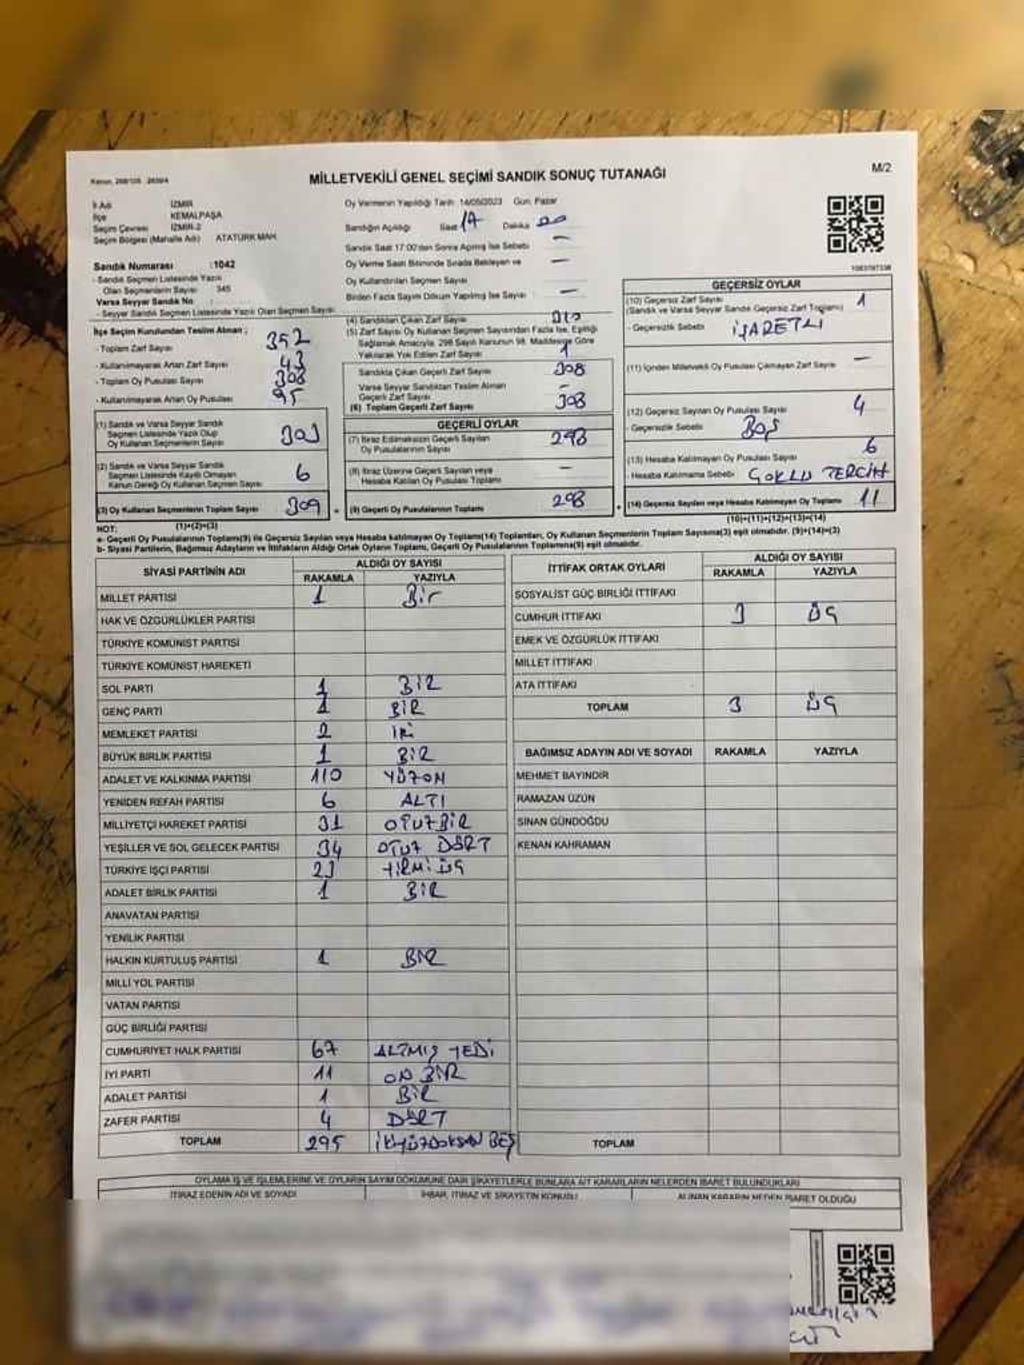 Kanun, 298/105 2839/4
MİLLETVEKİLİ GENEL SEÇİMİ SANDIK SONUÇ TUTANAĞI
M/2
İl Adı İZMİR
İlçe KEMALPAŞA
Seçim Çevresi İZMİR-2
Seçim Bölgesi (Mahalle Adı) ATATÜRK MAH.
Oy Vermenin Yapıldığı Tarih 14/05/2023 Gün. Pazar
Sandığın Açıldığı Saat 17 Dakika 00
Sandık Saat 17:00'den Sonra Açılmış İse Sebebi —
Oy Verme Saati Bitiminde Sırada Bekleyen ve
Oy Kullandırılan Seçmen Sayısı —
Birden Fazla Sayım Döküm Yapılmış İse Sayısı —
Sandık Numarası :1042
- Sandık Seçmen Listesinde Yazılı
Olan Seçmenlerin Sayısı 345
Varsa Seyyar Sandık No
- Seyyar Sandık Seçmen Listesinde Yazılı Olan Seçmen Sayısı
İlçe Seçim Kurulundan Teslim Alınan ;
- Toplam Zarf Sayısı 352
- Kullanılmayarak Artan Zarf Sayısı 43
- Toplam Oy Pusulası Sayısı
- Kullanılmayarak Artan Oy Pusulası 95
(1) Sandık ve Varsa Seyyar Sandık
Seçmen Listesinde Yazılı Olup
Oy Kullanan Seçmenlerin Sayısı 303
(2) Sandık ve Varsa Seyyar Sandık
Seçmen Listesinde Kayıtlı Olmayan
Kanun Gereği Oy Kullanan Seçmen Sayısı 6
(3) Oy Kullanan Seçmenlerin Toplam Sayısı 309
(1)+(2)=(3)
(4) Sandıktan Çıkan Zarf Sayısı
(5) Zarf Sayısı Oy Kullanan Seçmen Sayısından Fazla İse, Eşitliği
Sağlamak Amacıyla, 298 Sayılı Kanunun 98. Maddesine Göre
Yakılarak Yok Edilen Zarf Sayısı 1
Sandıkta Çıkan Geçerli Zarf Sayısı 308
Varsa Seyyar Sandıktan Teslim Alınan
Geçerli Zarf Sayısı —
(6) Toplam Geçerli Zarf Sayısı 308
GEÇERLİ OYLAR
(7) İtiraz Edilmeksizin Geçerli Sayılan
Oy Pusulalarının Sayısı 298
(8) İtiraz Üzerine Geçerli Sayılan veya
Hesaba Katılan Oy Pusulası Toplamı —
(9) Geçerli Oy Pusulalarının Toplamı 298
GEÇERSİZ OYLAR
(10) Geçersiz Zarf Sayısı 1
(Sandık ve Varsa Seyyar Sandık Geçersiz Zarf Toplamı)
- Geçersizlik Sebebi İŞARETLİ
(11) İçinden Milletvekili Oy Pusulası Çıkmayan Zarf Sayısı —
(12) Geçersiz Sayılan Oy Pusulası Sayısı 4
- Geçersizlik Sebebi BOŞ
(13) Hesaba Katılmayan Oy Pusulası Sayısı 6
- Hesaba Katılmama Sebebi ÇOKLU TERCİH
(14) Geçersiz Sayılan veya Hesaba Katılmayan Oy Toplamı 11
(10)+(11)+(12)+(13)=(14)
NOT:
a- Geçerli Oy Pusulalarının Toplamı(9) ile Geçersiz Sayılan veya Hesaba Katılmayan Oy Toplamı(14) Toplamları, Oy Kullanan Seçmenlerin Toplam Sayısına(3) eşit olmalıdır. (9)+(14)=(3)
b- Siyasi Partilerin, Bağımsız Adayların ve İttifakların Aldığı Ortak Oyların Toplamı, Geçerli Oy Pusulalarının Toplamına(9) eşit olmalıdır.
SİYASİ PARTİNİN ADI ALDIĞI OY SAYISI
RAKAMLA YAZIYLA
MİLLET PARTİSİ 1 Bir
HAK VE ÖZGÜRLÜKLER PARTİSİ
TÜRKİYE KOMÜNİST PARTİSİ
TÜRKİYE KOMÜNİST HAREKETİ
SOL PARTİ 1 BİR
GENÇ PARTİ 1 BİR
MEMLEKET PARTİSİ 2 İKİ
BÜYÜK BİRLİK PARTİSİ 1 BİR
ADALET VE KALKINMA PARTİSİ 110 YÜZON
YENİDEN REFAH PARTİSİ 6 ALTI
MİLLİYETÇİ HAREKET PARTİSİ 31 OTUZBİR
YEŞİLLER VE SOL GELECEK PARTİSİ 34 OTUZ DÖRT
TÜRKİYE İŞÇİ PARTİSİ 23 YİRMİ ÜÇ
ADALET BİRLİK PARTİSİ 1 BİR
ANAVATAN PARTİSİ
YENİLİK PARTİSİ
HALKIN KURTULUŞ PARTİSİ 1 BİR
MİLLİ YOL PARTİSİ
VATAN PARTİSİ
GÜÇ BİRLİĞİ PARTİSİ
CUMHURİYET HALK PARTİSİ 67 ALTMIŞ YEDİ
İYİ PARTİ 11 ON BİR
ADALET PARTİSİ 1 BİR
ZAFER PARTİSİ 4 DÖRT
TOPLAM 295 İKİYÜZDOKSAN BEŞ
İTTİFAK ORTAK OYLARI ALDIĞI OY SAYISI
RAKAMLA YAZIYLA
SOSYALİST GÜÇ BİRLİĞİ İTTİFAKI
CUMHUR İTTİFAKI 3 ÜÇ
EMEK VE ÖZGÜRLÜK İTTİFAKI
MİLLET İTTİFAKI
ATA İTTİFAKI
TOPLAM 3 ÜÇ
BAĞIMSIZ ADAYIN ADI VE SOYADI RAKAMLA YAZIYLA
MEHMET BAYINDIR
RAMAZAN ÜZÜN
SİNAN GÜNDOĞDU
KENAN KAHRAMAN
TOPLAM
OYLAMA İŞ VE İŞLEMLERİNE VE OYLARIN SAYIM DÖKÜMÜNE DAİR ŞİKAYETLERLE BUNLARA AİT KARARLARIN NELERDEN İBARET BULUNDUKLARI
İTİRAZ EDENİN ADI VE SOYADI İHBAR, İTİRAZ VE ŞİKAYETİN KONUSU ALINAN KARARIN NEDEN İBARET OLDUĞU